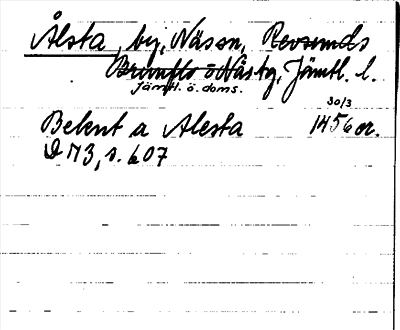 Ålsta, by, Näs sn, Revsunds
Brunflo o Näs tg, Jämtl. l.
Jämtl. ö. doms.
30/3
Bekent a Alesta 1456 or.
D 113, s. 607